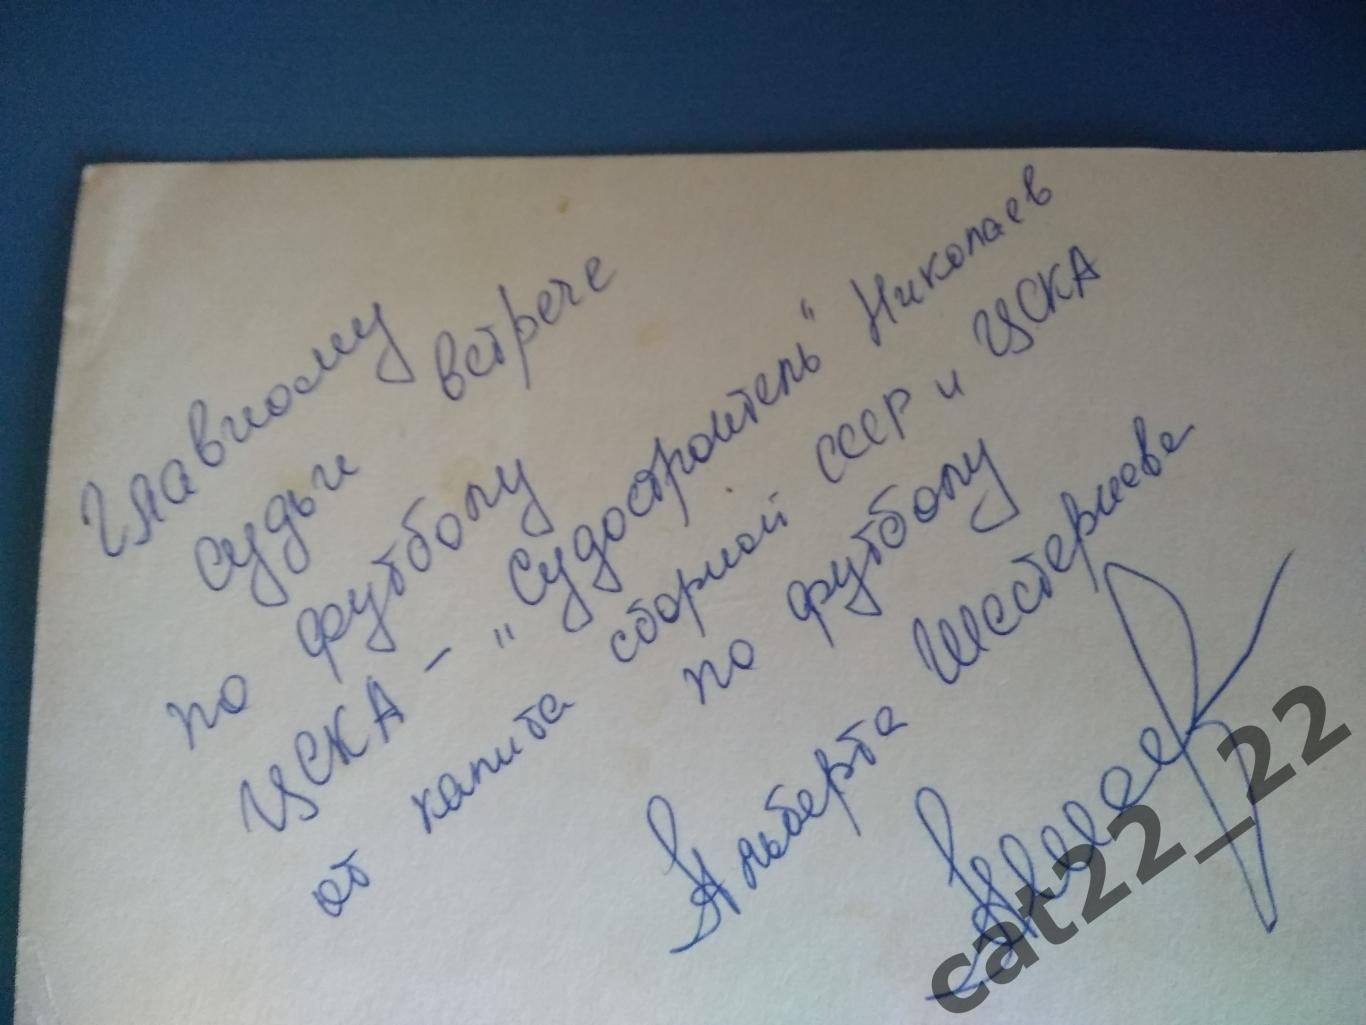 Главному
судьи встрече
по футболу
ЦСКА – „Судостроитель" Николаев
от капита сборной СССР и ЦСКА
по футболу
Альберта Шестернева
cat22_22